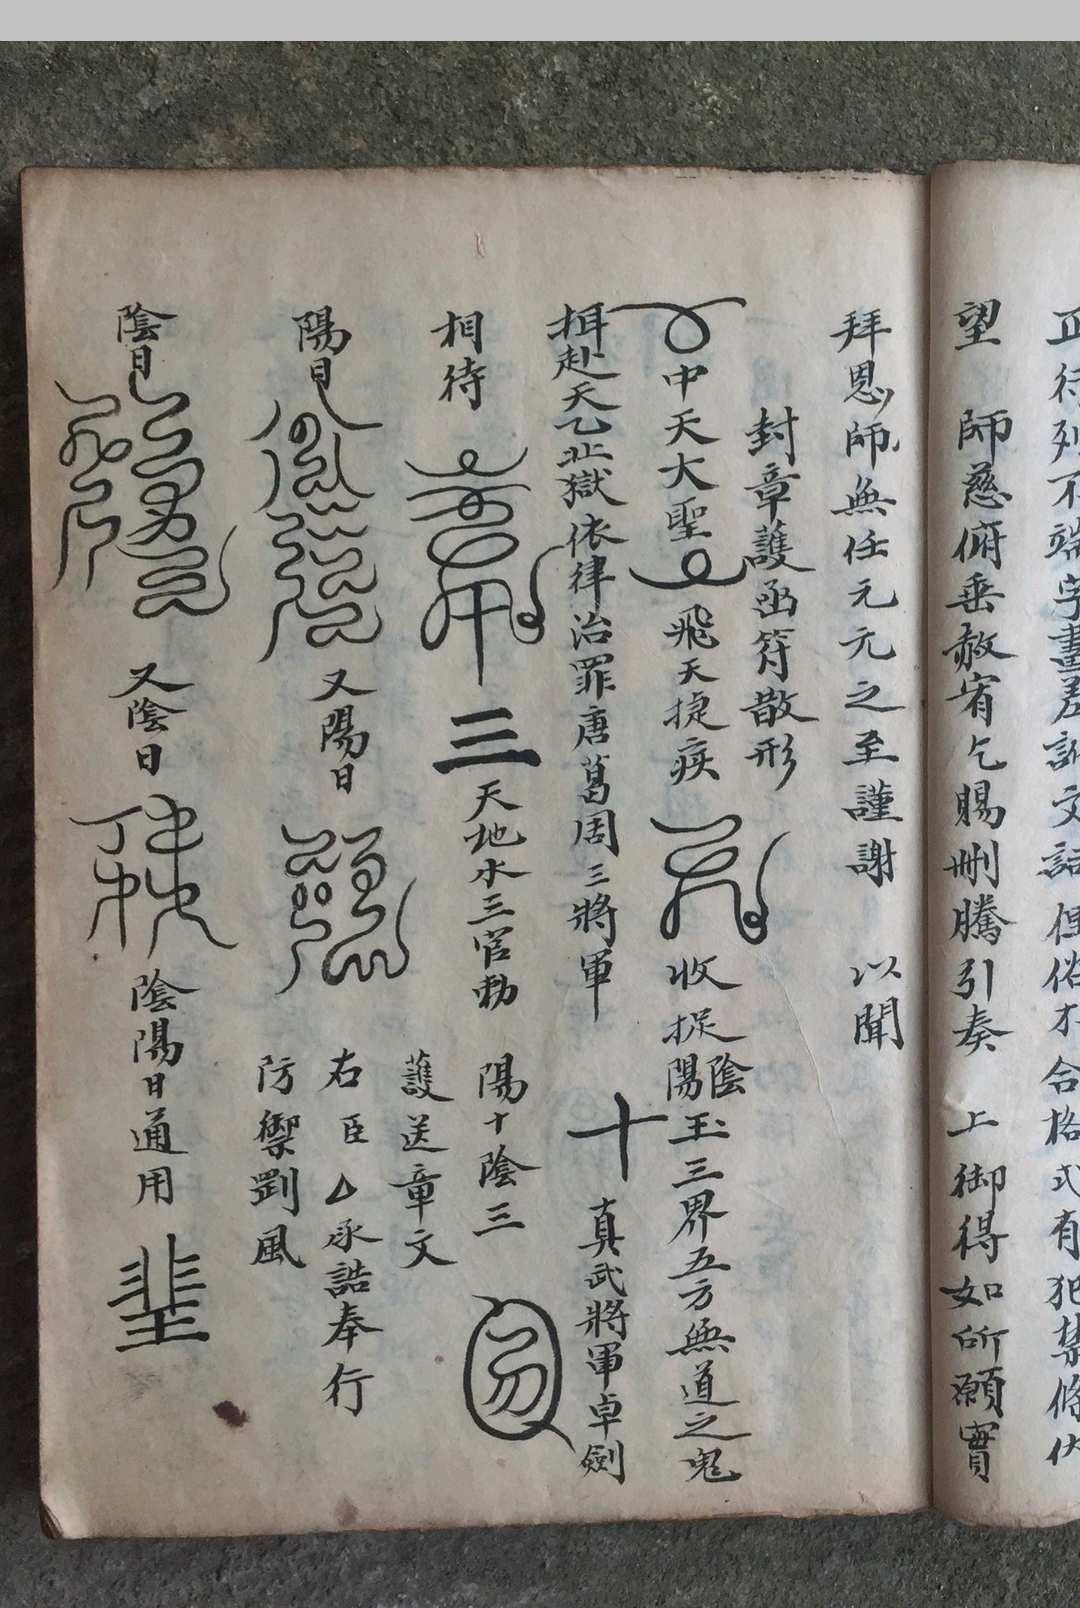 正行列不端字畫差訛文語俚俗不合格式有犯禁條伏
望 師慈俯垂赦宥乞賜刪騰引奏 上御得如所願實
拜恩師無任元元之至謹謝 以聞
封章護函符散形
中天大聖 飛天捷疾 收捉陰陽玉三界五方無道之鬼
赴天乙北獄依律治罪唐葛周三將軍 十 真武將軍卓劍
相待 三 天地水三官勑 陽十陰三
護送章文
陽日 又陽日 右臣厶承誥奉行
防禦罡風
陰日 又陰日 陰陽日通用